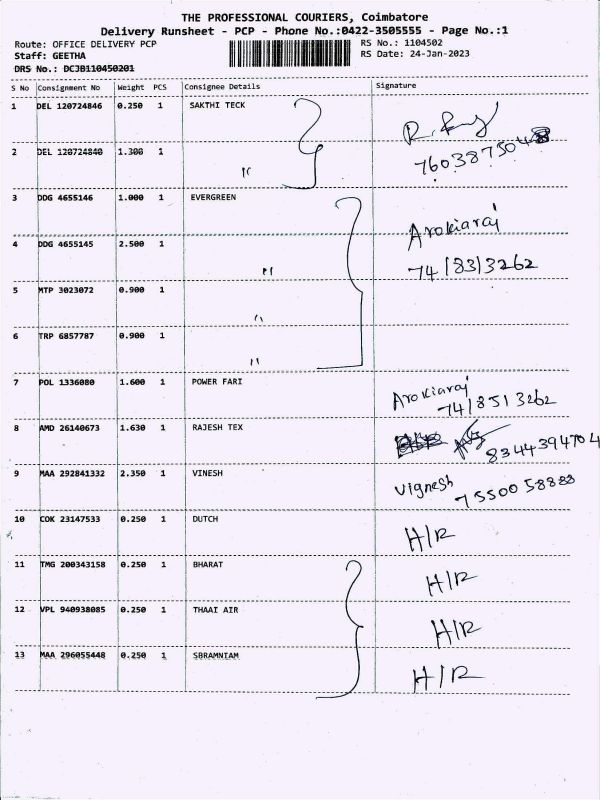 THE PROFESSIONAL COURIERS, Coimbatore
Delivery Runsheet - PCP - Phone No.:0422-3505555 - Page No.:1
Route: OFFICE DELIVERY PCP RS No.: 1104502
Staff: GEETHA RS Date: 24-Jan-2023
DRS No.: DCJB110450201
S No Consignment No Weight PCS Consignee Details Signature
1 DEL 120724846 0.250 1 SAKTHI TECK
2 DEL 120724840 1.300 1 "
3 DDG 4655146 1.000 1 EVERGREEN Arokiaraj
4 DDG 4655145 2.500 1 "
5 MTP 3023072 0.900 1 "
6 TRP 6857787 0.900 1 "
7 POL 1336080 1.600 1 POWER FARI Arokiaraj
8 AMD 26140673 1.630 1 RAJESH TEX 8344394704
9 MAA 292841332 2.350 1 VINESH Vignesh 7550058888
10 COK 23147533 0.250 1 DUTCH H/R
11 TMG 200343158 0.250 1 BHARAT H/R
12 VPL 940938085 0.250 1 THAAI AIR H/R
13 MAA 296055448 0.250 1 SBRAMNIAM H/R